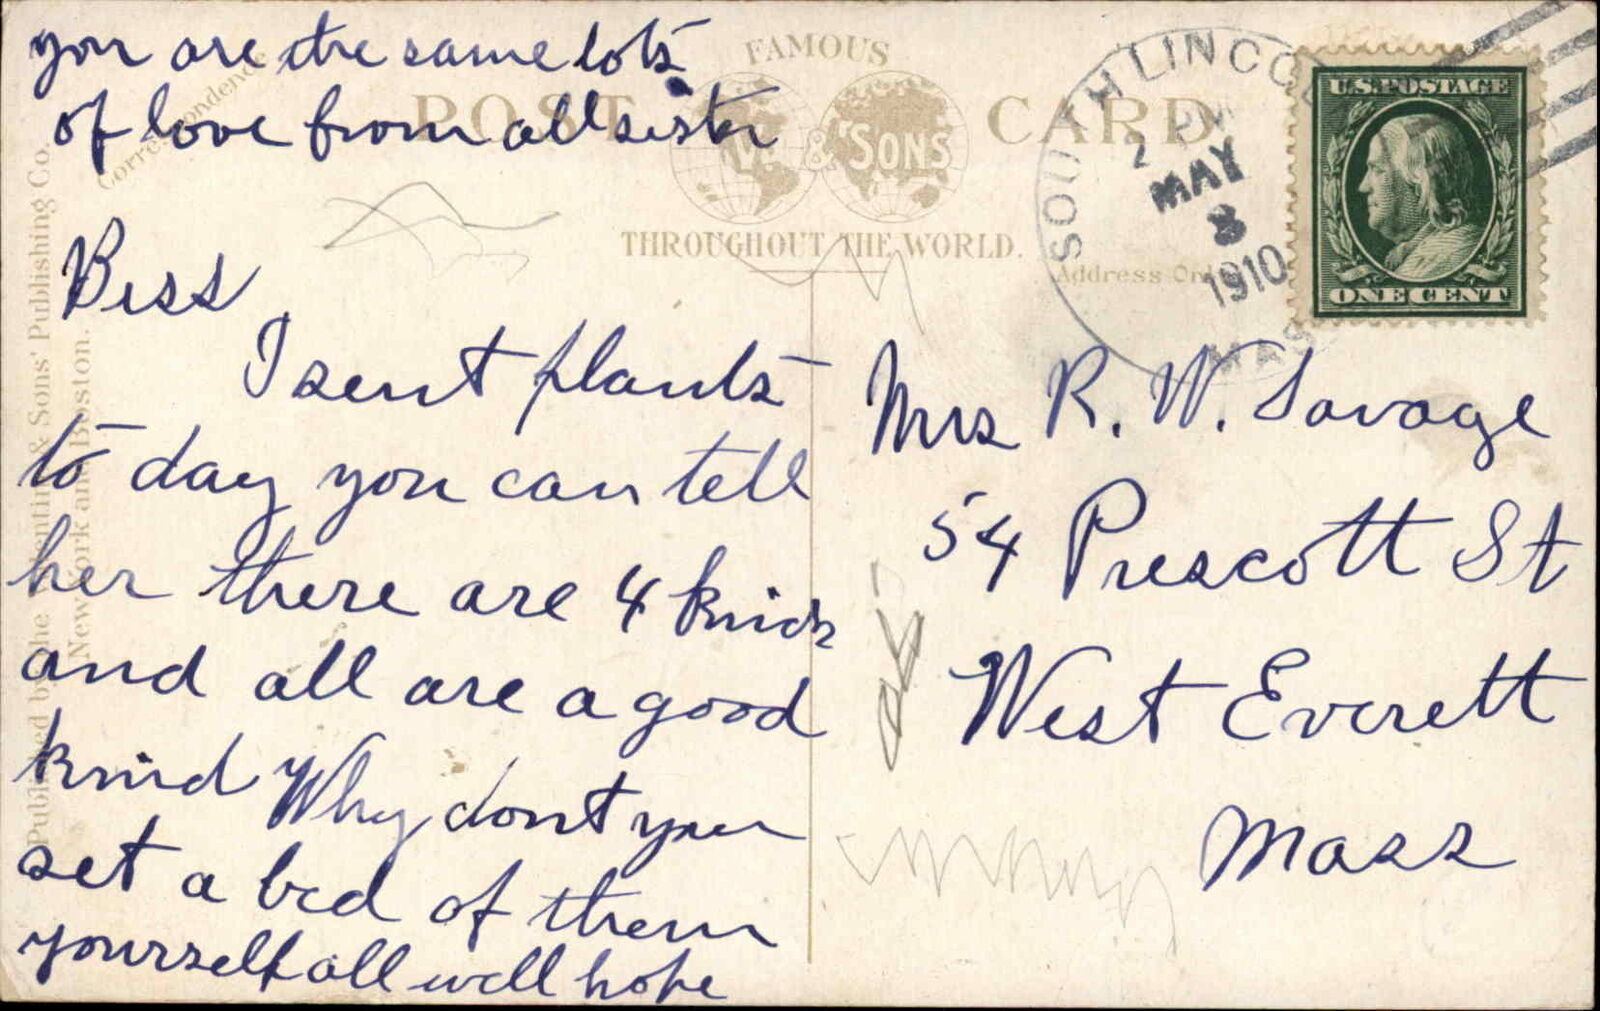 you are the same lots
of love from all sister
Bess
I sent plants
to day you can tell
her there are 4 kinds
and all are a good
kind Why dont you
set a bed of them
yourself all well hope
Correspondence
FAMOUS
POST CARD
& SONS
THROUGHOUT THE WORLD.
Published by the Valentine & Sons' Publishing Co.
New York and Boston.
SOUTH LINCOLN
2 PM
MAY
3
1910
MASS
U.S. POSTAGE
ONE CENT
Address Only
Mrs R. W. Savage
54 Prescott St
West Everett
Mass